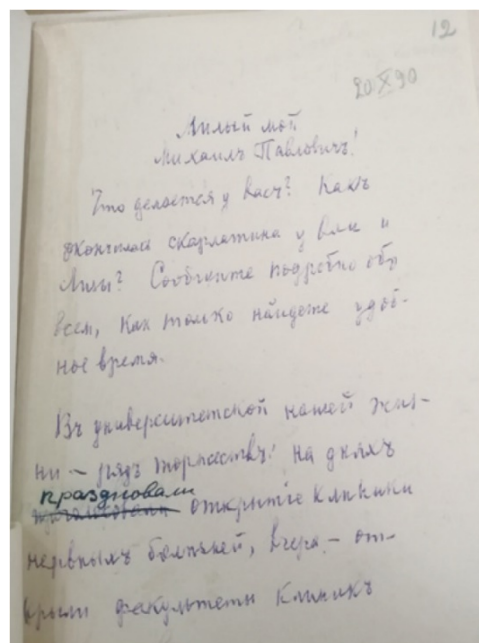 12
20 X 90
Милый мой
Михаилъ Павловичъ!
Что делается у васъ? Какъ
скарлатина у и
Сообщите подробно объ
всем, как только найдете удоб-
ное время.
Въ университетской нашей жиз-
ни — рядъ торжествъ: на дняхъ
праздновали
открытіе клиники
нервныхъ болѣзней, вчера — от-
крыли факультеты клиникъ